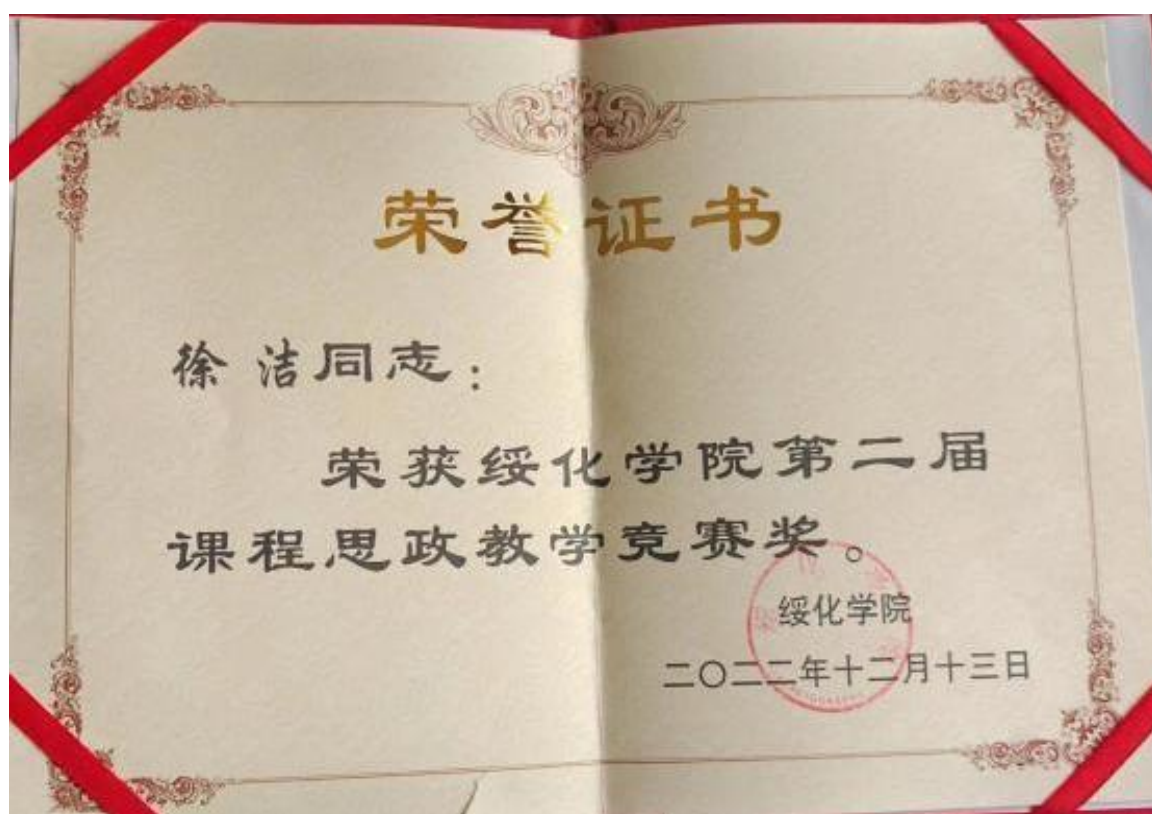 荣誉证书
徐洁同志：
荣获绥化学院第二届
课程思政教学竞赛奖。
绥化学院
二〇二二年十二月十三日